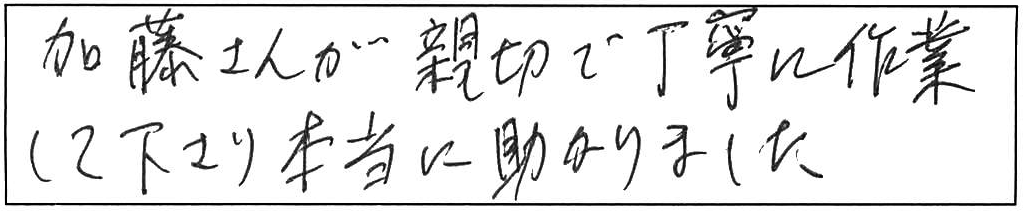 加藤さんが親切で丁寧に作業
して下さり本当に助かりました